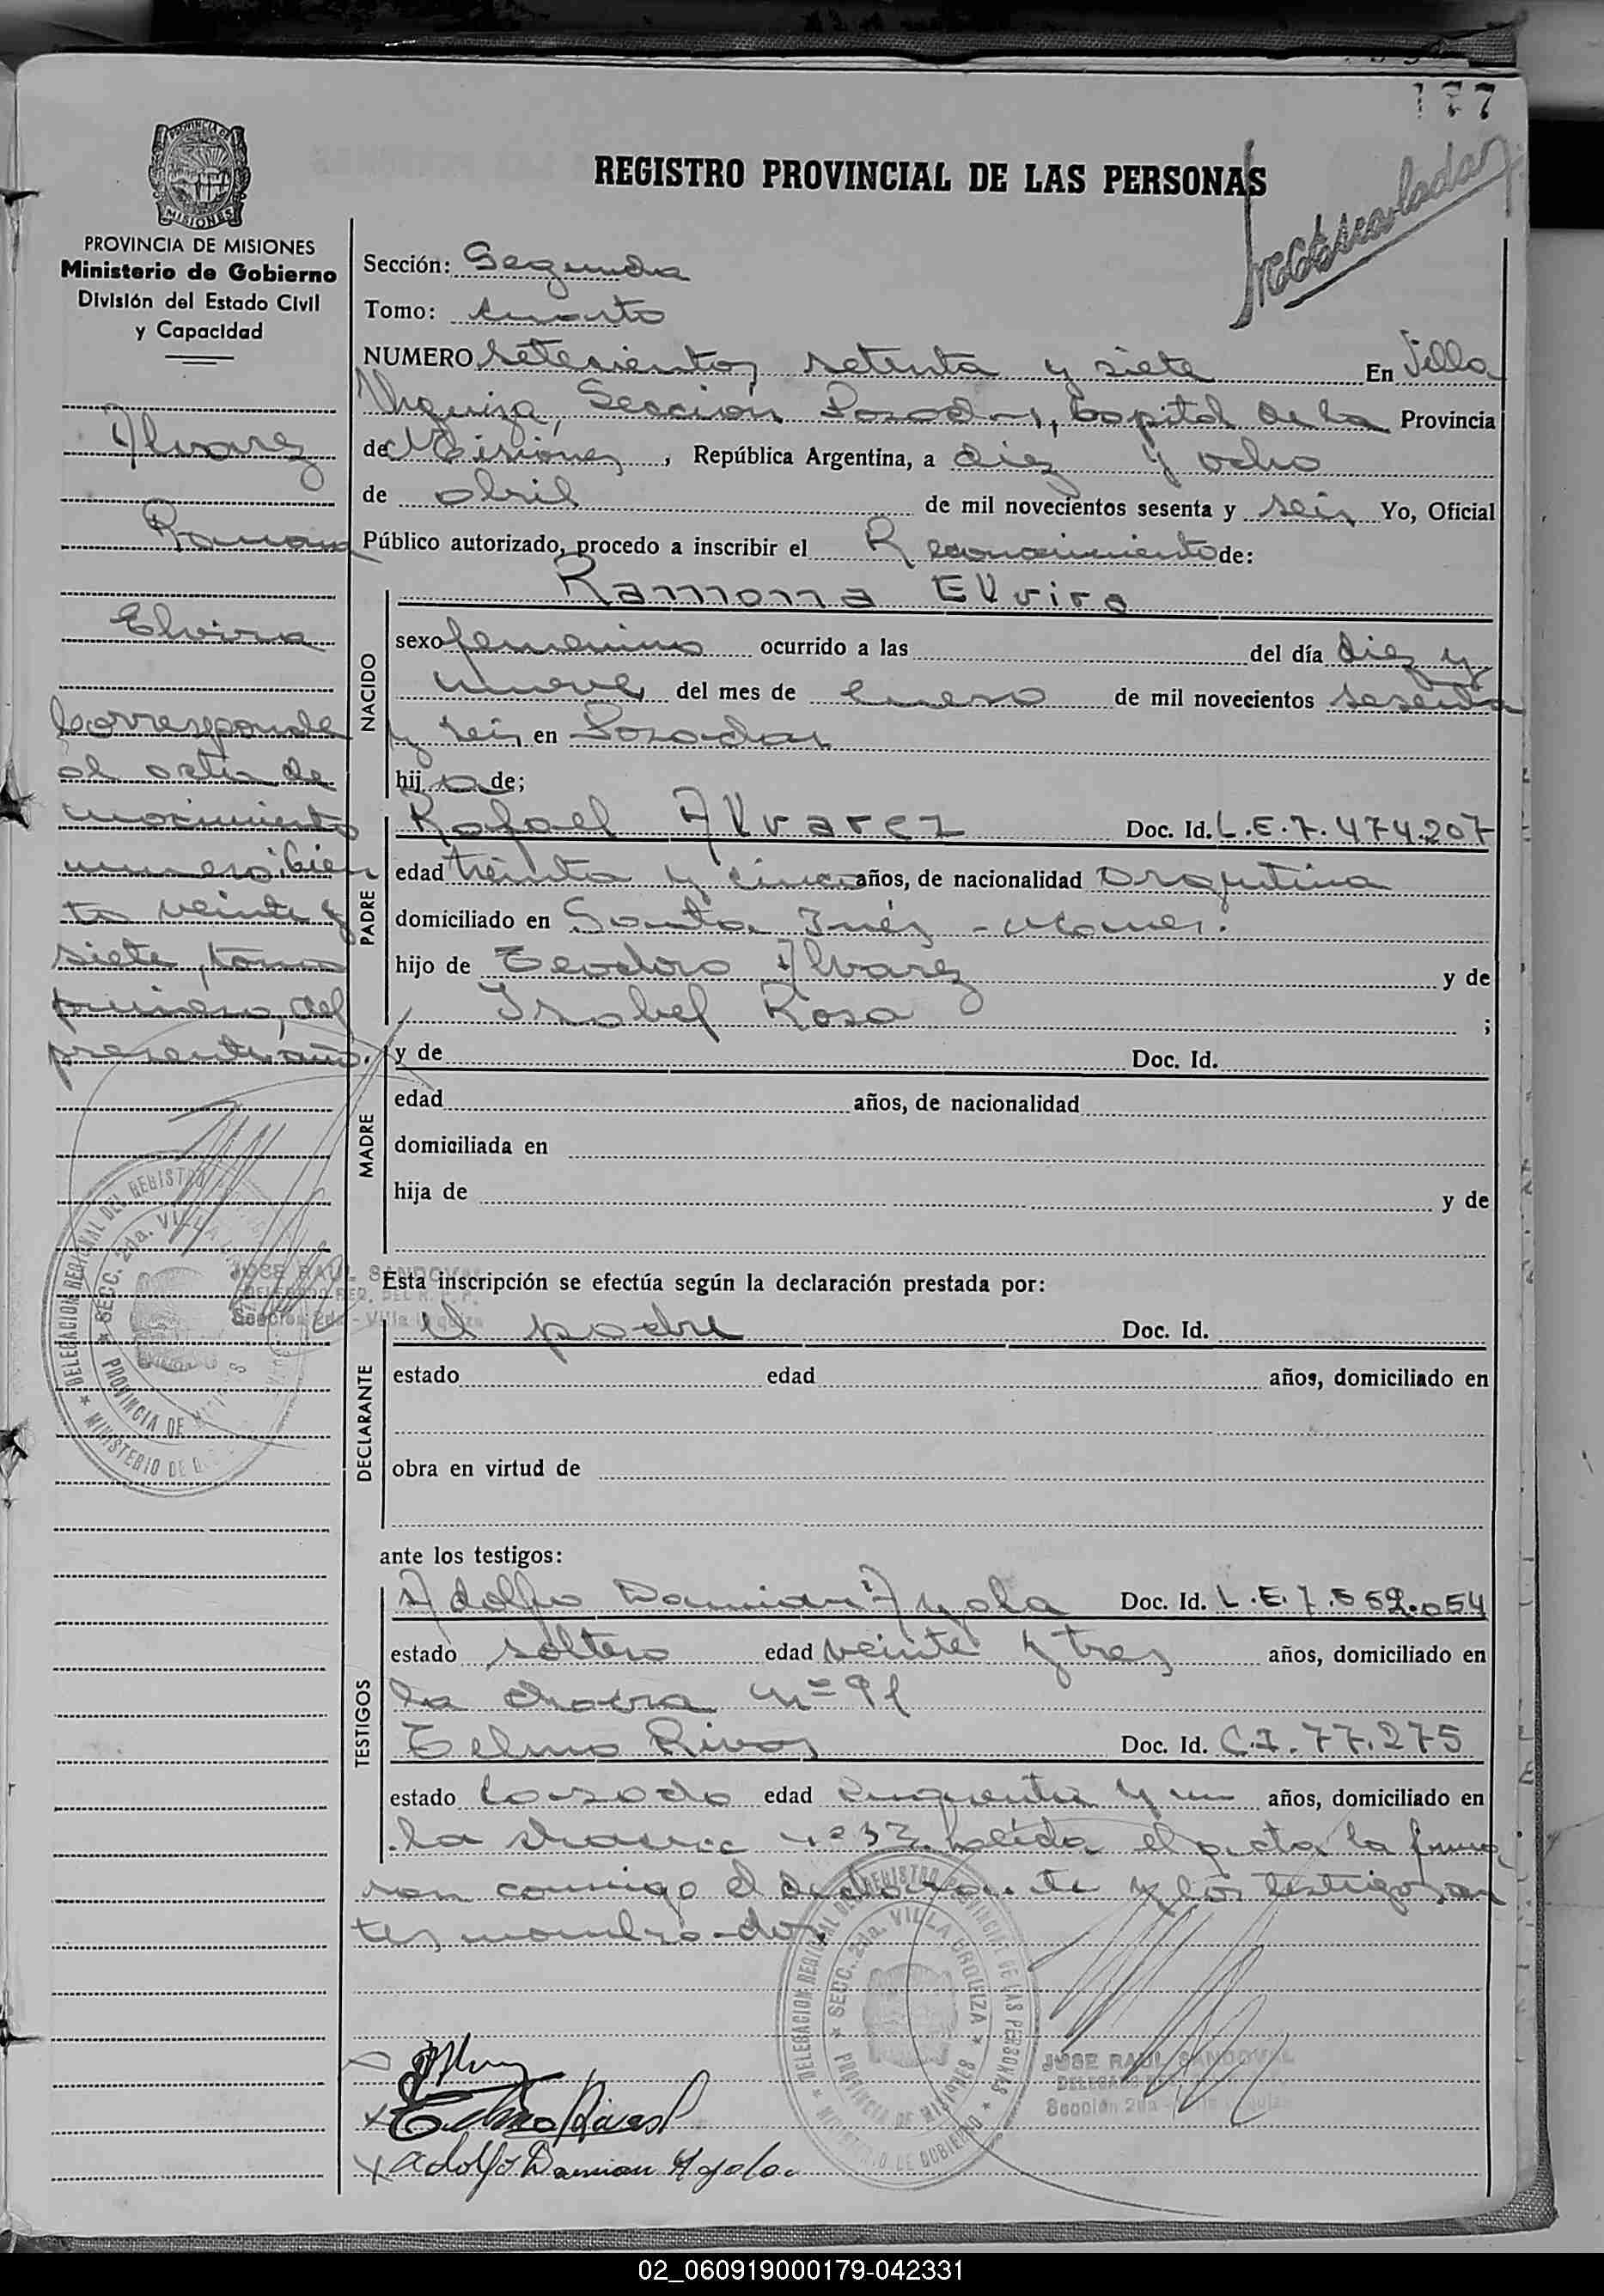 177
REGISTRO PROVINCIAL DE LAS PERSONAS
PROVINCIA DE MISIONES
PROVINCIA DE MISIONES
Ministerio de Gobierno
División del Estado Civil
y Capacidad
Alvarez
Ramona
Elvira
Corresponde
al acta de
nacimiento
numero: cien
to veinte y
siete, tomo
primero, del
presente año.
Sección: Segunda
Tomo: cuarto
NUMERO setecientos setenta y siete En Villa
Urquiza, Sección Posadas, Capital de la Provincia
de Misiones, República Argentina, a diez y ocho
de abril de mil novecientos sesenta y seis Yo, Oficial
Público autorizado, procedo a inscribir el Reconocimiento de:
NACIDO
Ramona Elvira
sexo femenino ocurrido a las del día diez y
nueve del mes de Enero de mil novecientos sesenta
y seis en Posadas
hija de;
PADRE
Rafael Alvarez Doc. Id. L.E.7.474.207
edad treinta y cinco años, de nacionalidad Argentina
domiciliado en Santa Inés
hijo de Teodoro Alvarez y de
Isabel Rosa ;
MADRE
y de Doc. Id.
edad años, de nacionalidad
domiciliada en
hija de y de
Esta inscripción se efectúa según la declaración prestada por:
DECLARANTE
el padre Doc. Id.
estado edad años, domiciliado en
obra en virtud de
ante los testigos:
TESTIGOS
Adolfo Damian Ayala Doc. Id. L.E.7.559.054
estado soltero edad veinte y tres años, domiciliado en
la chacra nº 91
Telmo Rivas Doc. Id. C.I.77.275
estado Casado edad cinquenta y un años, domiciliado en
la chacra nº 32. Leida el acta la firma
ron conmigo el declarante y los testigos an
tes nombrados
DELEGACION REGIONAL DEL REGISTRO
SECC. 2da. VILLA
PROVINCIA DE MISIONES
MINISTERIO DE
JOSE RAUL SANDOVAL
DELEGADO REG. DEL R. P. P.
Sección 2da - Villa Urquiza
DELEGACION REGIONAL DEL REGISTRO PROVINCIAL DE LAS PERSONAS
SECC. 2da. VILLA URQUIZA
PROVINCIA DE MISIONES
MINISTERIO DE GOBIERNO
JOSE RAUL SANDOVAL
DELEGADO
Sección 2da - Villa Urquiza
Telmo Rivas
Adolfo Damian Ayala
02_060919000179-042331